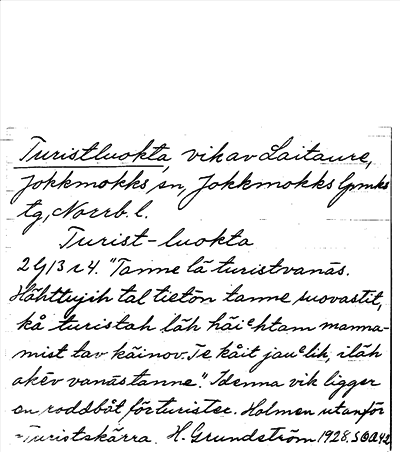 Turistluokta, vik av Laitaure,
Jokkmokks sn, Jokkmokks lpmks
tg, Norrb. l.
Turist-luokta
2 G 13 r 4. "Tanne lä turistvanás.
Hähttujih tal tietön tanne, suovastit,
kå turistah läh häiᶜhtam manna-
mist tav käinov. Te kåit jauᶜlik, iläh
akëv vanás tanne." I denna vik ligger
en roddbåt för turister. Holmen utanför
= Turistskärra. H. Grundström 1928.